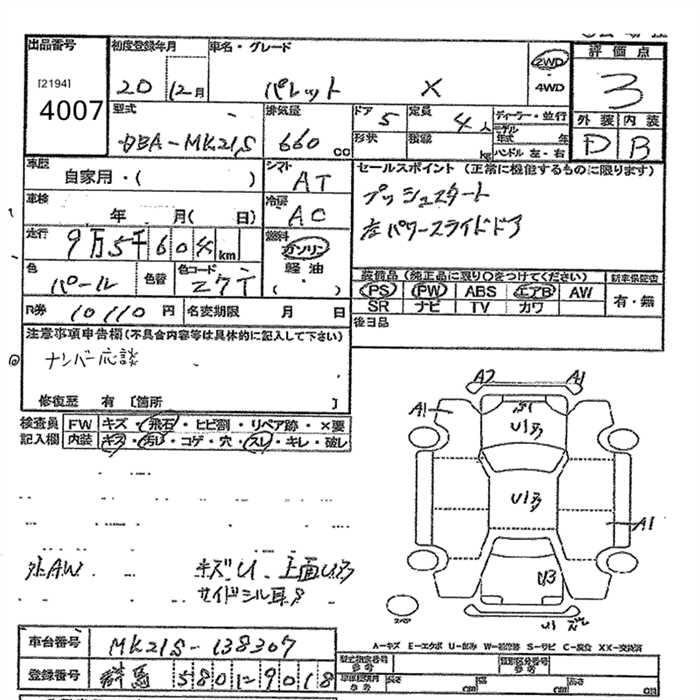 出品番号
[2194]
4007
初度登録年月
20 12月
車名・グレード
パレット X
2WD
・
4WD
評価点
3
型式
DBA-MK21S
排気量
660 cc
ドア 5
形状
定員 4人
積載 kg
ディーラー・並行
モデル年式 年
ハンドル 左・右
外装 内装
D B
車歴
自家用・( )
シフト
AT
セールスポイント (正常に機能するものに限ります)
プッシュスタート
左パワースライドドア
車検
年 月( 日)
冷房
AC
走行
9万5千604km
燃料
ガソリン
軽油
( ・ )
色
パール
色替
色コード
Z7T
装備品 (純正品に限り○をつけてください)
新車保証書
PS PW ABS エアB AW
SR ナビ TV カワ
有・無
R券 10110円
名変期限 月 日
後日品
注意事項申告欄(不具合内容等は具体的に記入して下さい)
ナンバー応談
修復歴 有 [箇所 ]
検査員
記入欄
FW キズ・飛石・ヒビ割・リペア跡・×要
内装 キズ・汚れ・コゲ・穴・スレ・キレ・破レ
A2 A1
A1
U1
A1
U3
U1
外AW
キズU 上面U
サイドシル耳
スペア
A-キズ E-エクボ U-凹み W-補修跡 S-サビ C-腐食 XX-交換済
車台番号 MK21S-138307
登録番号 群馬 580 1 9018
型式指定番号
参考
類別区分番号
参考